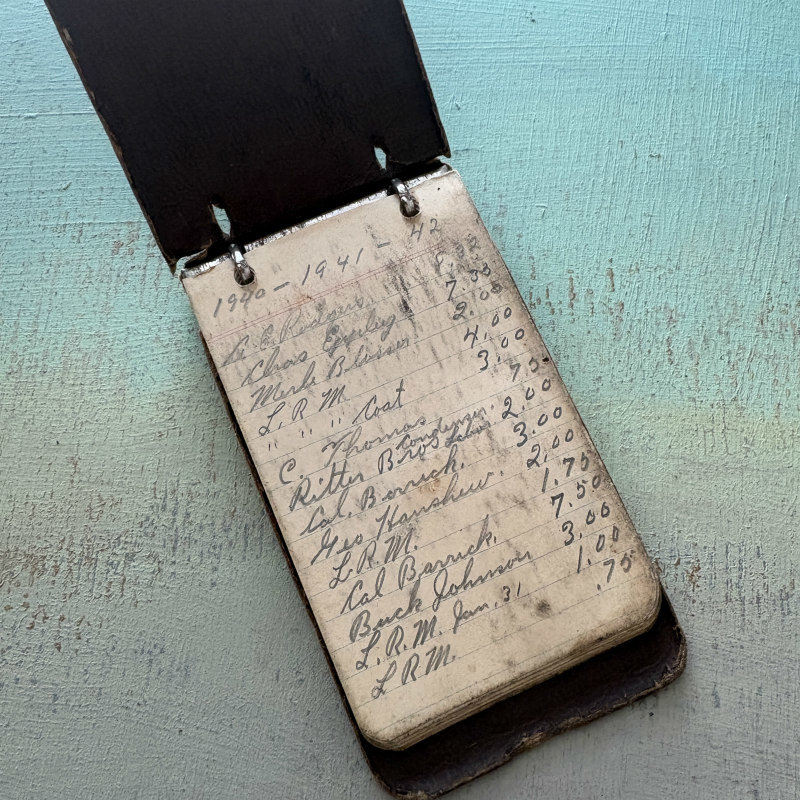 1940 - 1941 - 42
Chas 7.33
Merle Blosser 2.00
L. R M 4.00
" " " Coat 3.00
C. Thomas 75
Condenser.
Ritter Bros Labor 2.00
Cal. Barrick. 3.00
Geo Hanshew. 2.00
L. R M. 1.75
Cal Barrick. 7.50
Buck Johnson 3.00
L. R. M. Jan. 31 1.00
L R M. .75